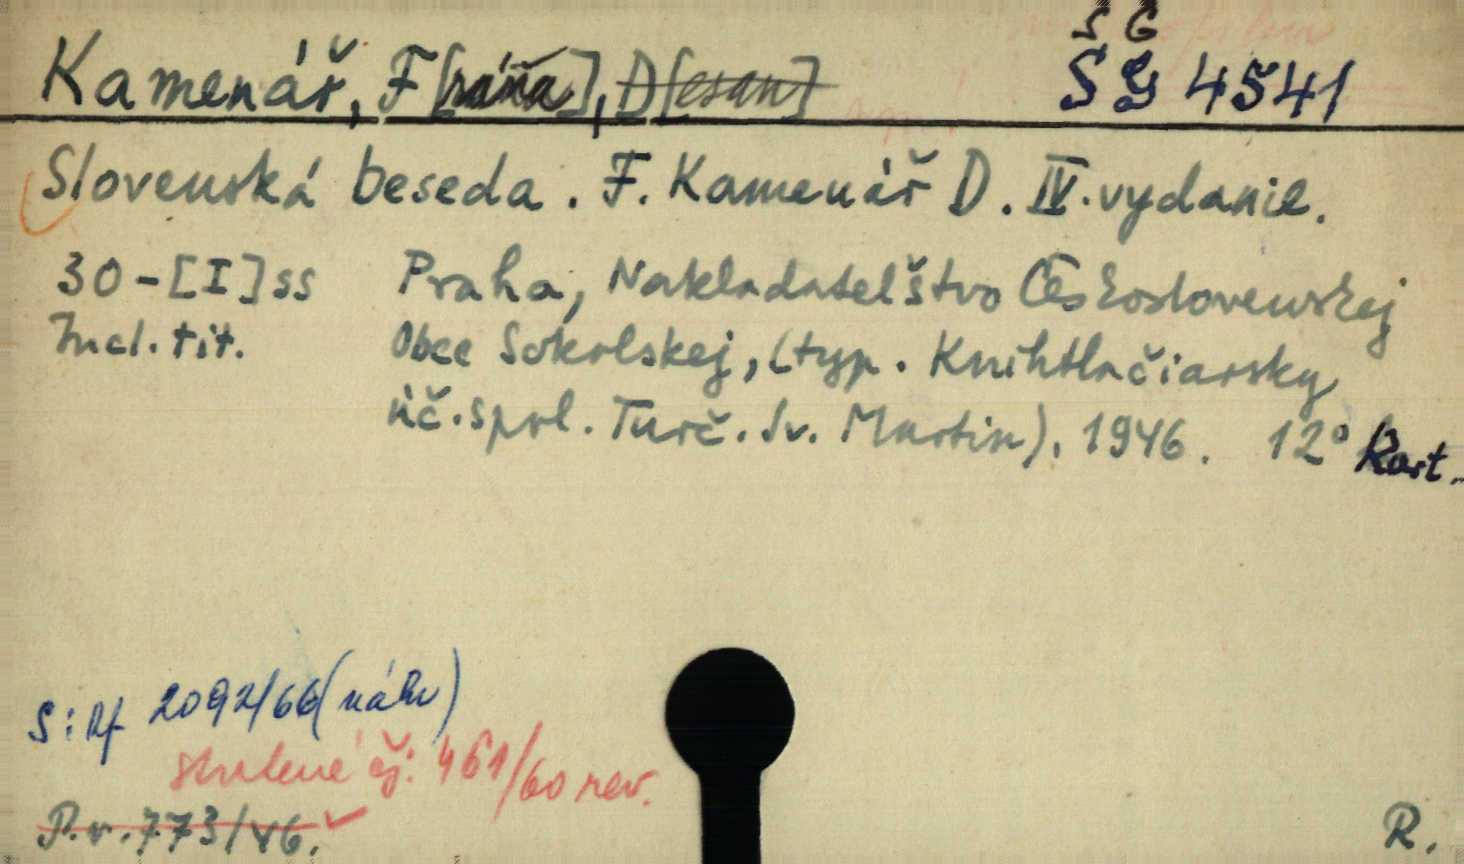 S G
Kamenář, F[ráňa], D[esan] SG 4541
Slovenská beseda. F. Kamenář D. IV. vydanie.
30-[I]ss Praha, Nakladatelštvo Českoslovevenskej
Incl. tit. Obce Sokolskej, (typ. Knihtlačiarsky
úč. spol. Turč. Sv. Martin). 1946. 12° Kart.
S: Rf 2092/66 (náhr)
stratené čj: 461/60 rev.
P.v. 773/46.
R.